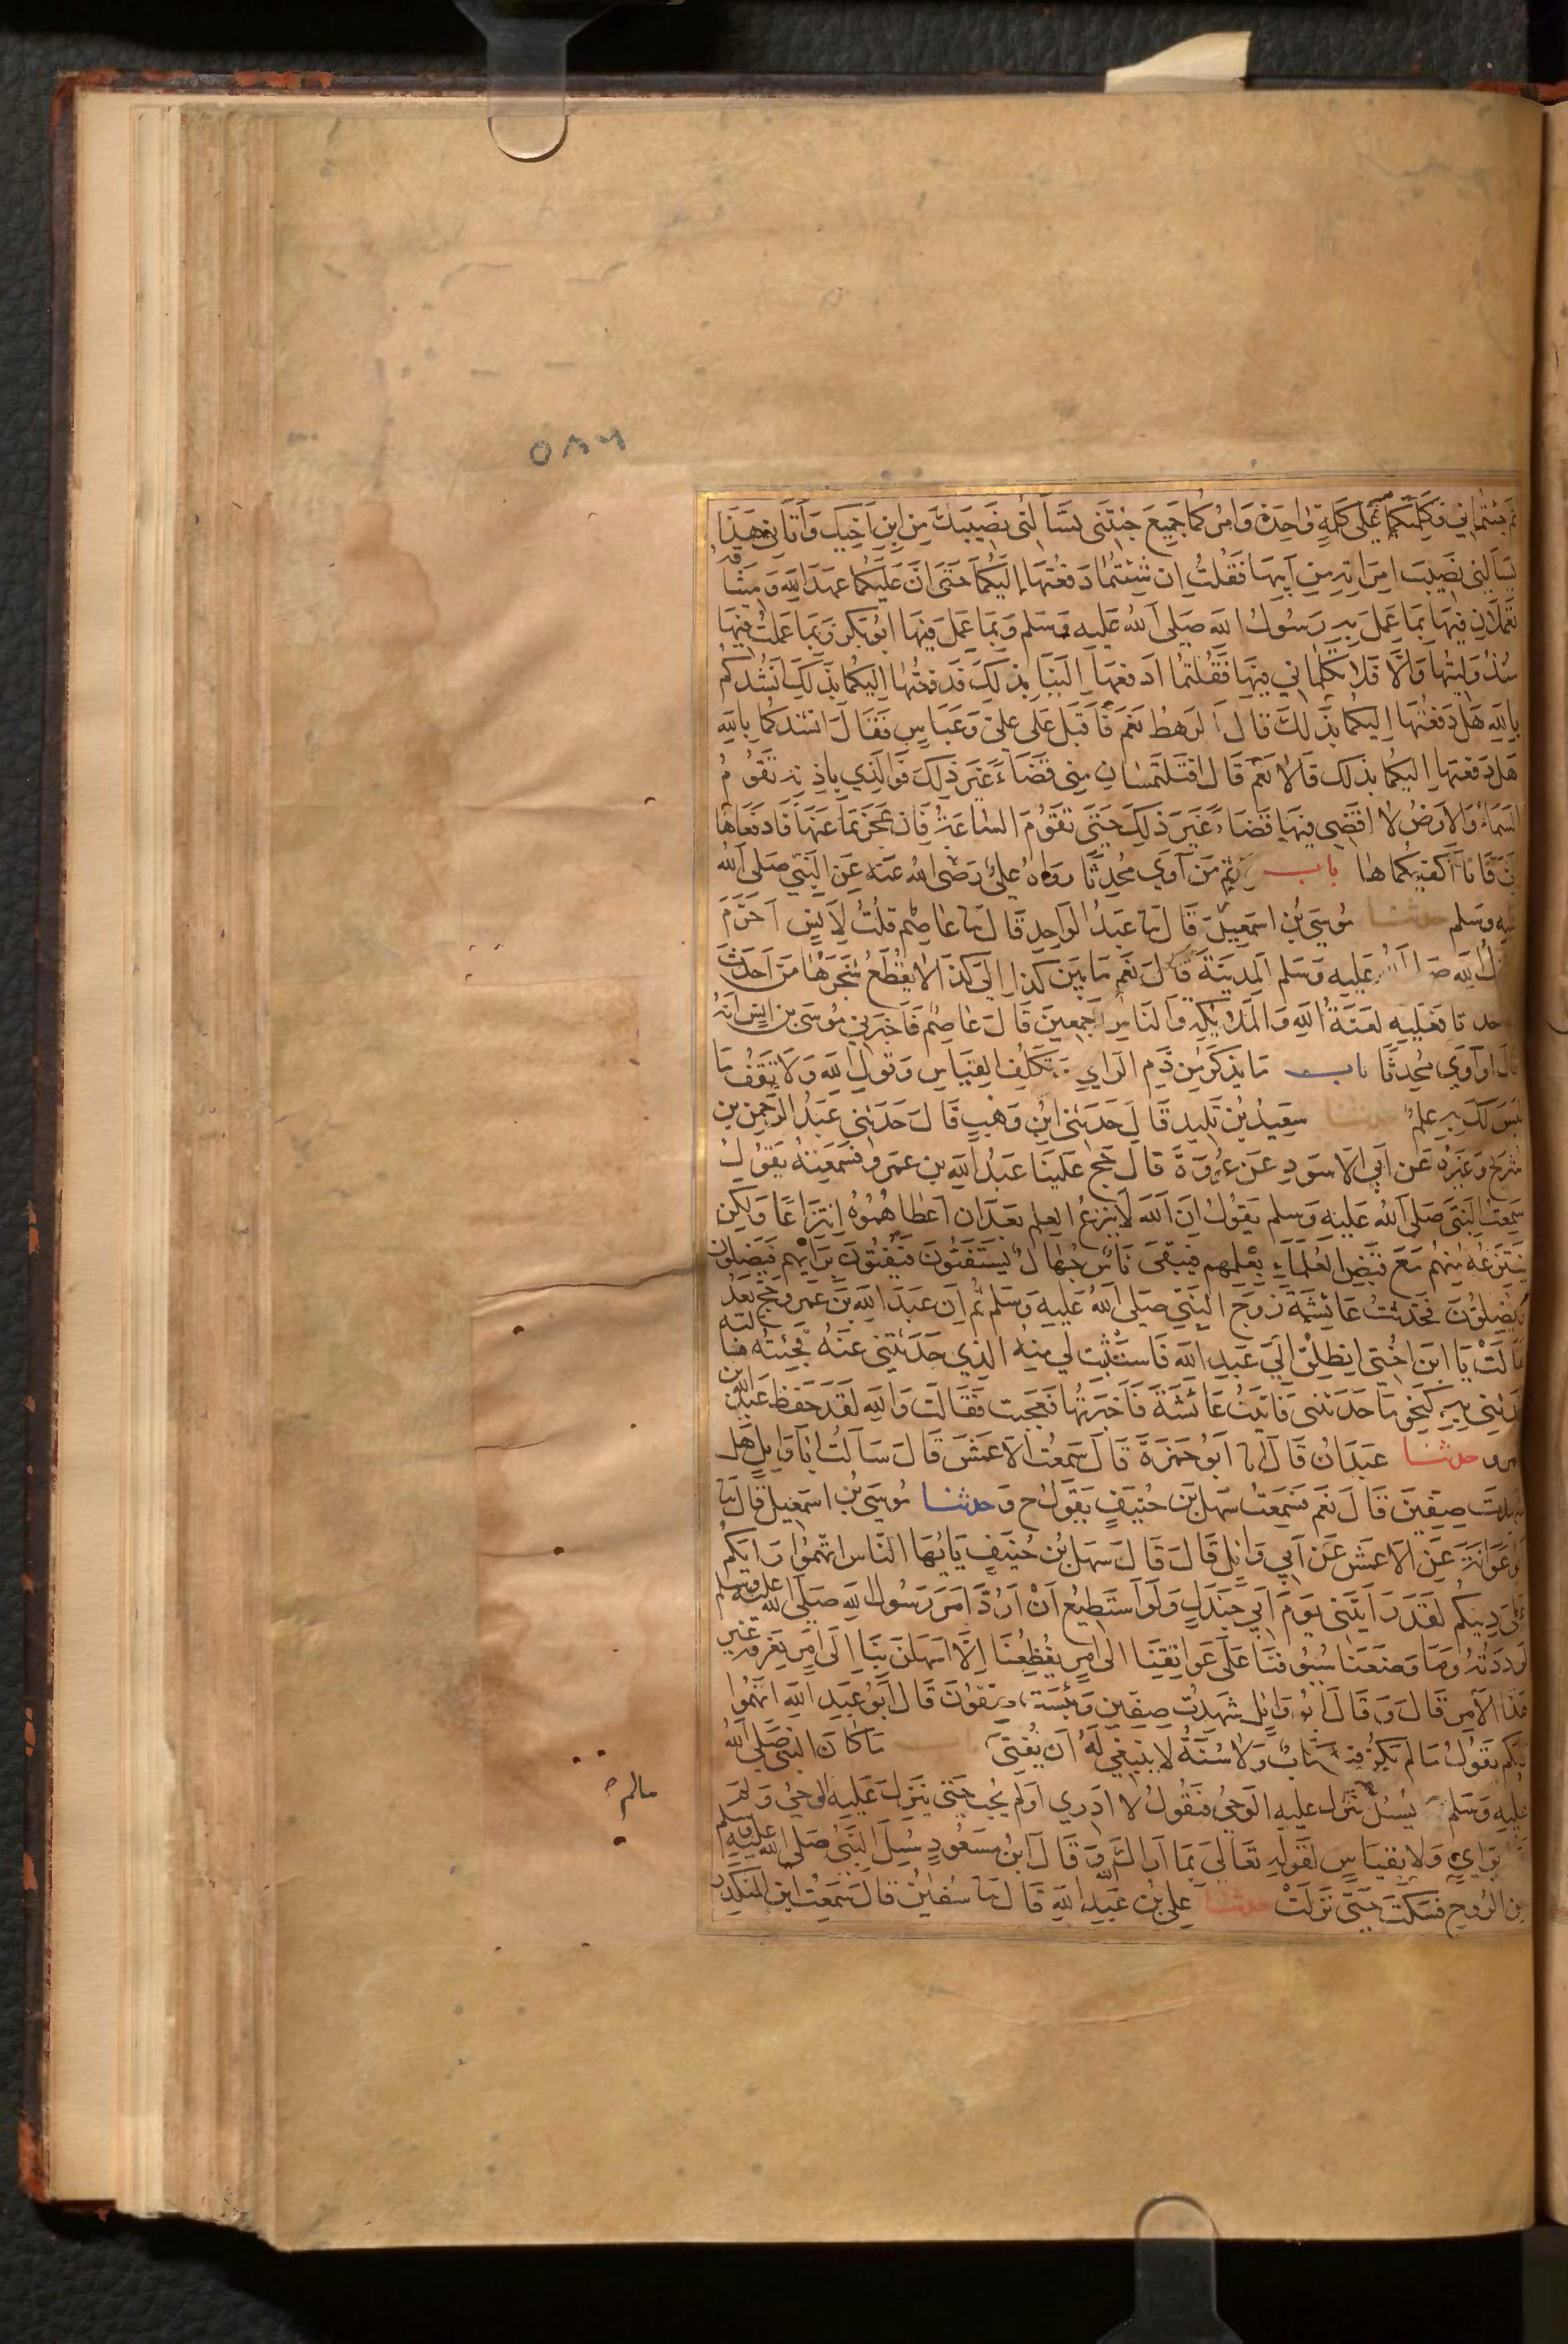 ٥٨٦
ثم جئتماني فكلمتكما على كلمة واحدة وامركما جميع جئتني تسألني نصيبك من ابن اخيك وأتاني هذا
يسألني نصيب امراته من ابيها فقلت ان شئتما دفعتها إليكما حتى ان عليكما عهد الله وميثاقه
تعملان فيها بما عمل به رسول الله صلى الله عليه وسلم وبما عمل فيها ابو بكر وبما عملت فيها
منذ وليتها والا فلا تكلماني فيها فقلتما ادفعها الينا بذلك فدفعتها اليكما بذلك انشدكم
بالله هل دفعتها اليكما بذلك قال الرهط نعم فأقبل على علي وعباس فقال انشدكما بالله
هل دفعتها اليكما بذلك قالا نعم قال افتلتمسان مني قضاء غير ذلك فوالذي باذنه تقوم
السماء والارض لا اقضي فيها قضاء غير ذلك حتى تقوم الساعة فان عجزتما عنها فادفعاها
الي فانا اكفيكماها باب اثم من آوى محدثا رواه علي رضي الله عنه عن النبي صلى الله
عليه وسلم حدثنا موسى بن اسمعيل قال نا عبد الواحد قال نا عاصم قلت لانس احرم
رسول الله صلى الله عليه وسلم المدينة قال نعم ما بين كذا إلى كذا لا يقطع شجرها من أحدث
حدثا فعليه لعنة الله والملائكة والناس اجمعين قال عاصم فاخبرني موسى بن انس انه
قال او آوى محدثا باب ما يذكر من ذم الراي وتكلف القياس وقول الله ولا تقف ما
ليس لك به علم حدثنا سعيد بن تليد قال حدثني ابن وهب قال حدثني عبد الرحمن بن
شريح وغيره عن ابي الاسود عن عروة قال حج علينا عبد الله بن عمرو فسمعته يقول
سمعت النبي صلى الله عليه وسلم يقول ان الله لا ينزع العلم بعد ان اعطاهموه انتزاعا ولكن
ينتزعه منهم مع قبض العلماء بعلمهم فيبقى ناس جهال يستفتون فيفتون برايهم فيضلون
ويضلون فحدثت عائشة زوج النبي صلى الله عليه وسلم ثم ان عبد الله بن عمرو حج بعد
فقالت يا ابن اختي انطلق الى عبد الله فاستثبت لي منه الذي حدثتني عنه فجئته فسالته
فحدثني به كنحو ما حدثني فاتيت عائشة فاخبرتها فعجبت فقالت والله لقد حفظ عبد الله بن
عمرو حدثنا عبدان قال انا ابو حمزة قال سمعت الاعمش قال سألت ابا وايل هل
شهدت صفين قال نعم فسمعت سهل بن حنيف يقول ح وحدثنا موسى بن اسمعيل قال نا
ابو عوانة عن الاعمش عن ابي وائل قال قال سهل بن حنيف يا يها الناس اتهموا رايكم
على دينكم لقد رأيتني يوم ابي جندل ولو أستطيع أن أرد امر رسول الله صلى الله عليه وسلم
لرددته وما وضعنا سيوفنا على عواتقنا الى امر يفظعنا إلا اسهلن بنا إلى امر نعرفه غير
هذا الأمر قال وقال ابو وايل شهدت صفين وبئست صفون قال ابو عبد الله اتهموا
رايكم يقول ما لم يكن فيه كتاب ولا سنة لا ينبغي له أن يفتي ما كان النبي صلى الله
عليه وسلم يسئل ينزل عليه الوحي فيقول لا ادري او لم يجب حتى ينزل عليه الوحي ولم
مالم
براي ولا بقياس لقوله تعالى بما اراك الله وقال ابن مسعود سئل النبي صلى الله عليه وسلم
عن الروح فسكت حتى نزلت حدثنا علي بن عبد الله قال نا سفين قال سمعت ابن المنكدر